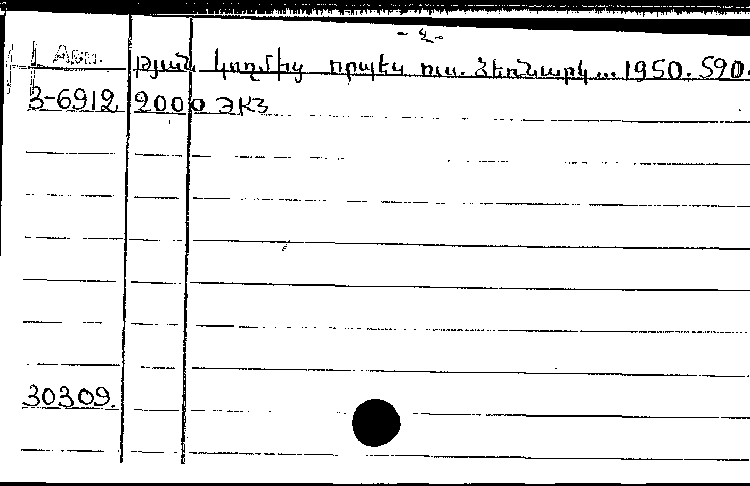 - 2 -
Арм. թյան կողմից որպես ուս. ձեռնարկ... 1950. 590.
3-6912 2000 экз
30309.